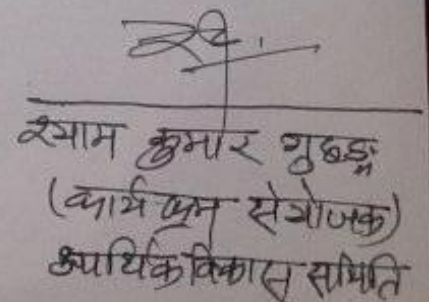 श्याम कुमार गुरुङ्ग
(कार्यक्रम संयोजक)
आर्थिक विकास समिति